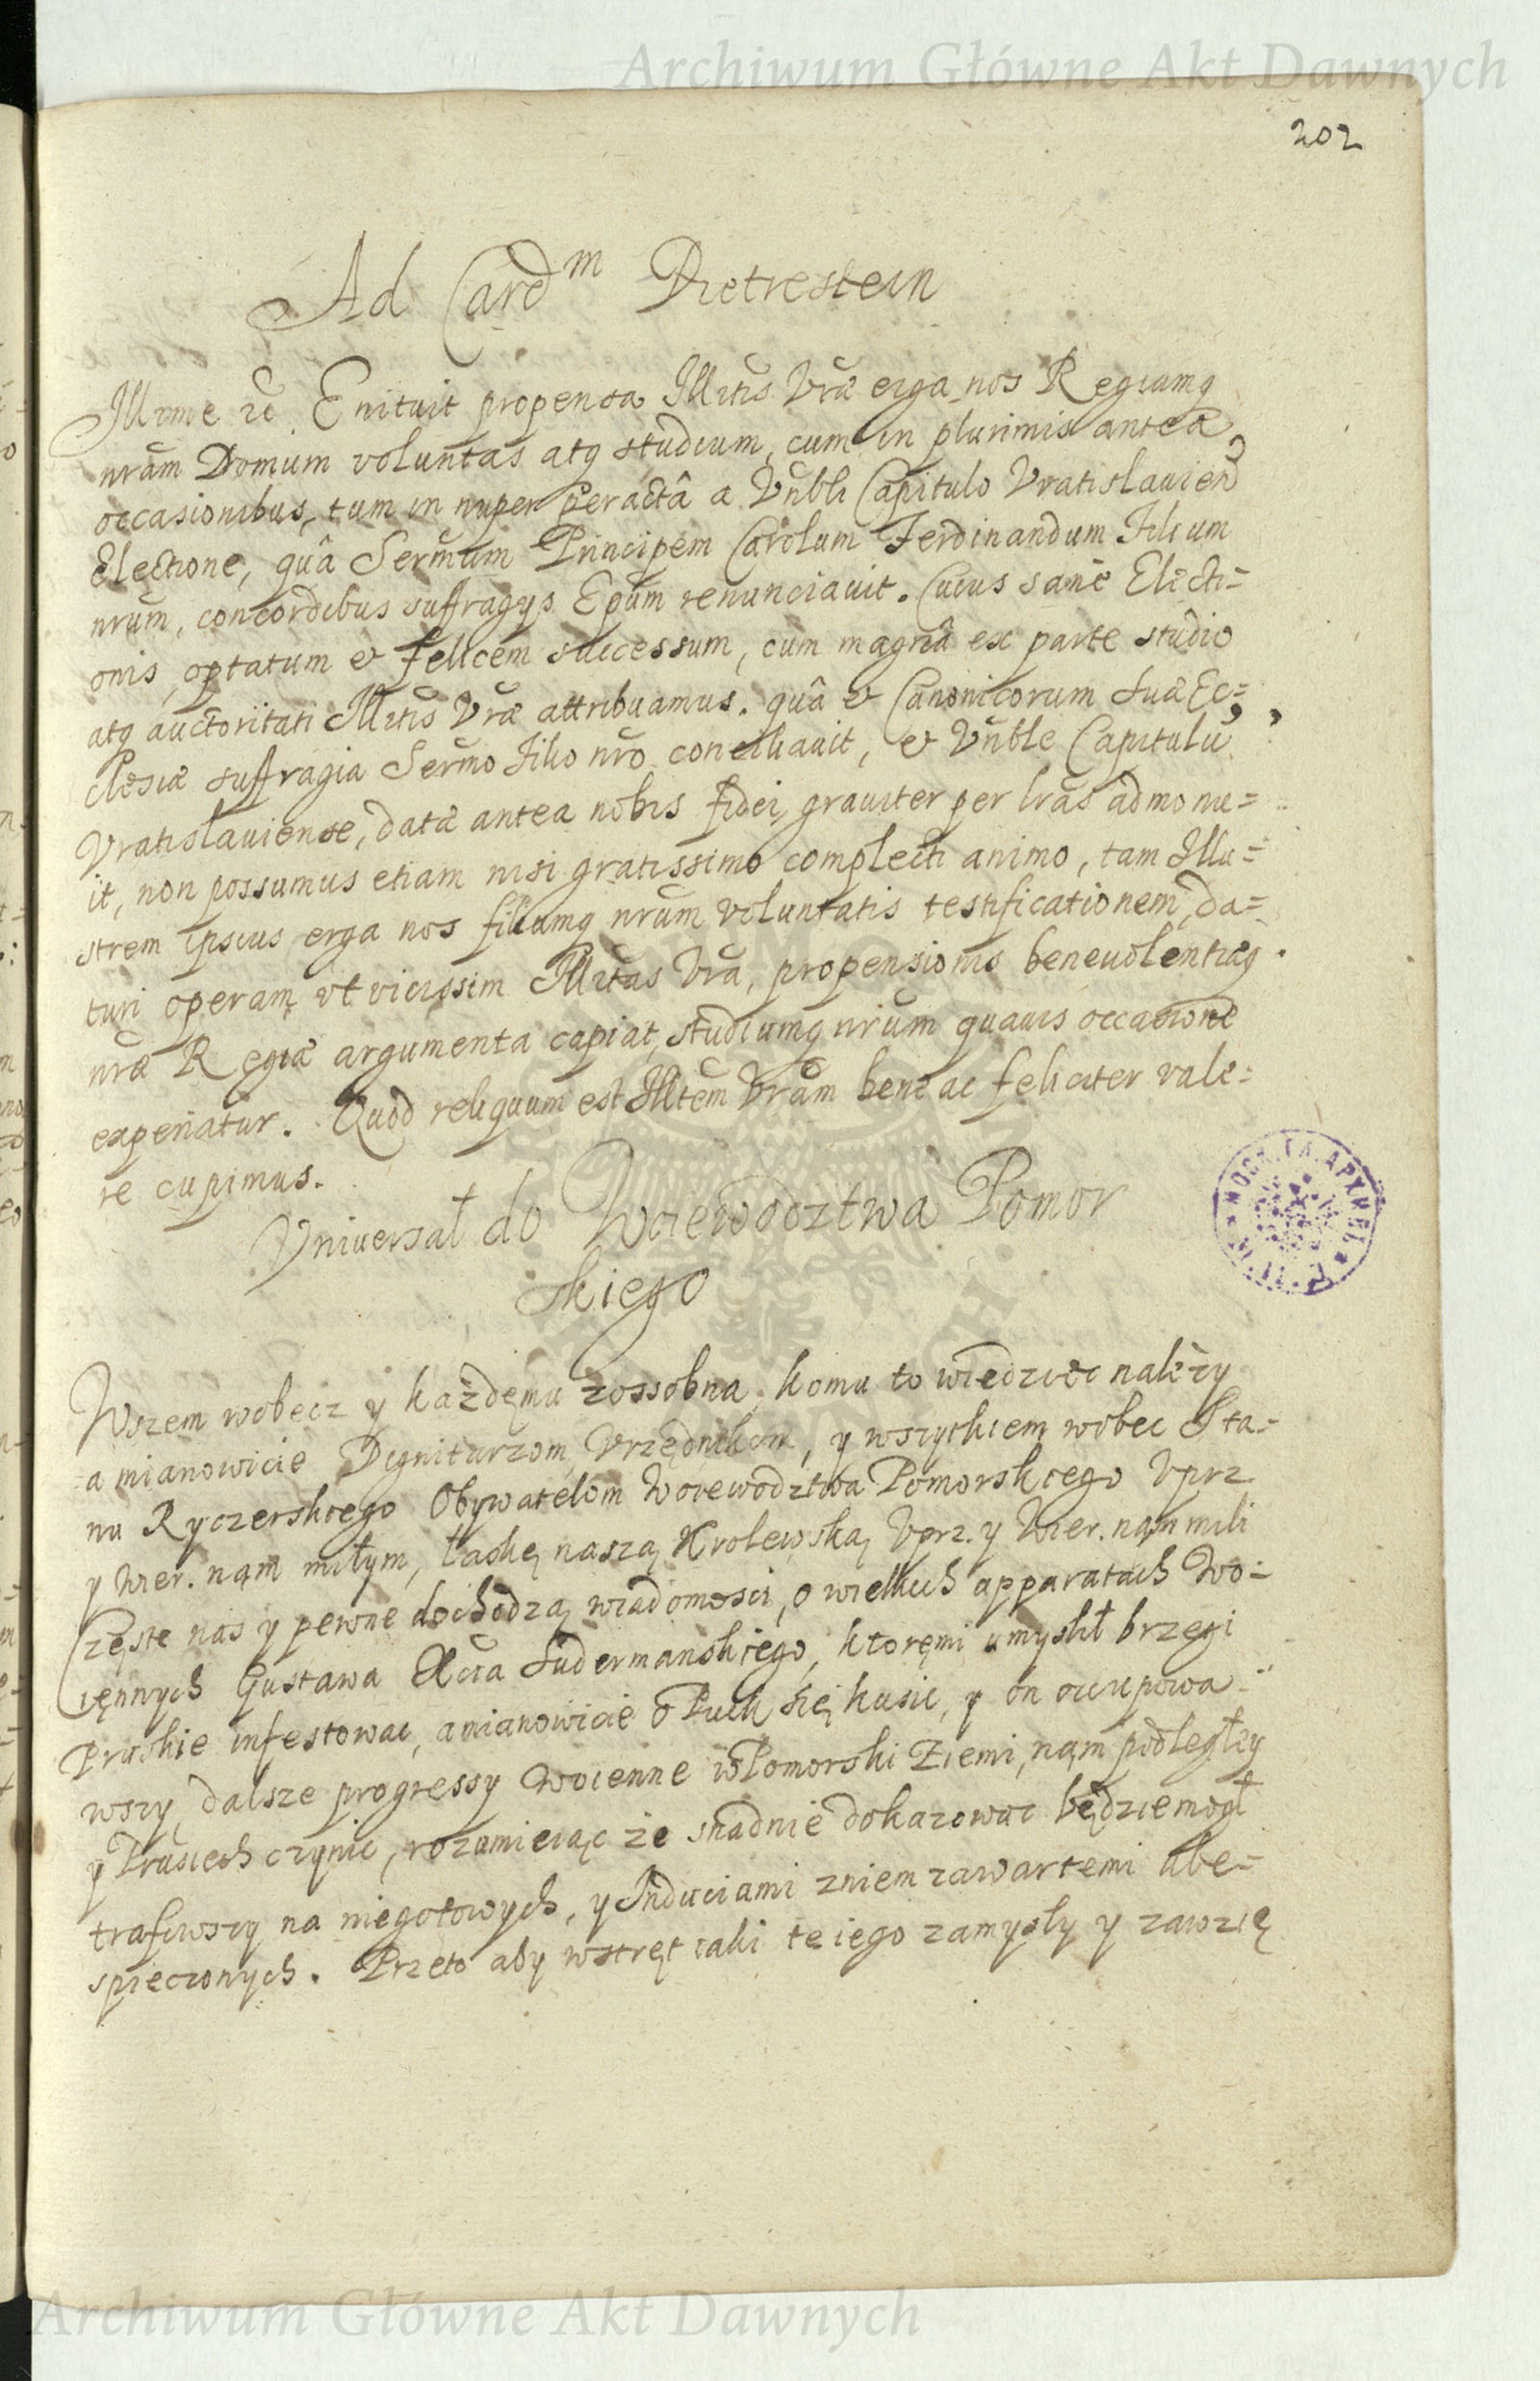 Archiwum Główne Akt Dawnych
202
Ad Card^m Dietrestein
Illrme etc. Enituit propensa Illrtis Vrae erga nos Regiamq
nram Domum voluntas atq studium, cum in plurimis antea
occasionibus, tum in nuper peractâ a Vnbli Capitulo Vratislauien
Electione, quâ Sermum Principem Carolum Ferdinandum Filium
nrum, concordibus suffragys Epum renunciauit. Cuius sanè Electi=
onis, optatum et felicem successum, cum magnâ ex parte studio
atq auctoritati Illrtis Vrae attribuamus. quâ et Canonicorum suae Ec=
clesiae suffragia Sermo Filio nro conciliauit, et Vnble Capitulu
Vratislauiense, datae antea nobis fidei, grauiter per lras admonu=
it, non possumus etiam nisi gratissimo complecti animo, tam Illu=
strem ipsius erga nos filiumq nrum voluntatis testificationem, da=
turi operam vt vicissim Illrtas Vra, propensionis beneuolentiaeq
nrae Regiae argumenta capiat, studiumq nrum quauis occasione
experiatur. Quod reliquum est Illtem Vram bene ac feliciter vale=
re cupimus.
Vniuersał do Woiewodztwa Pomor
skiego
Wszem wobecz y każdęmu zossobna, komu to wiedziec należy
a mianowicie Dignitarzom, Vrzędnikom, y wszytkiem wobec Sta=
nu Ryczerskiego Obywatelom Woiewodztwa Pomorskiego Vprz
y Wier. nąm miłym, łaskę naszą Krolewską Vprz. y Wier. nąm mili
Częste nas y pewne dochodzą wiadomości, o wielkich apparatach Wo=
ięnnych Gustawa Xcia Sudermanskiego, ktoręmi umyslił brzegi
Pruskie infestowac, a mianowicie o Puck się kusic, y on occupowa=
wszy dalsze progressy woienne w Pomorski Ziemi, nąm podległy
y Prusiech czynic, rozumieiąc że snadnie dokazowac będzie mogł
trafiwszy na niegotowych, y Induciami zniem zawartemi ube=
spieczonych. Przeto aby wstręt iaki te iego zamysły y zawzię
Archiwum Główne Akt Dawnych